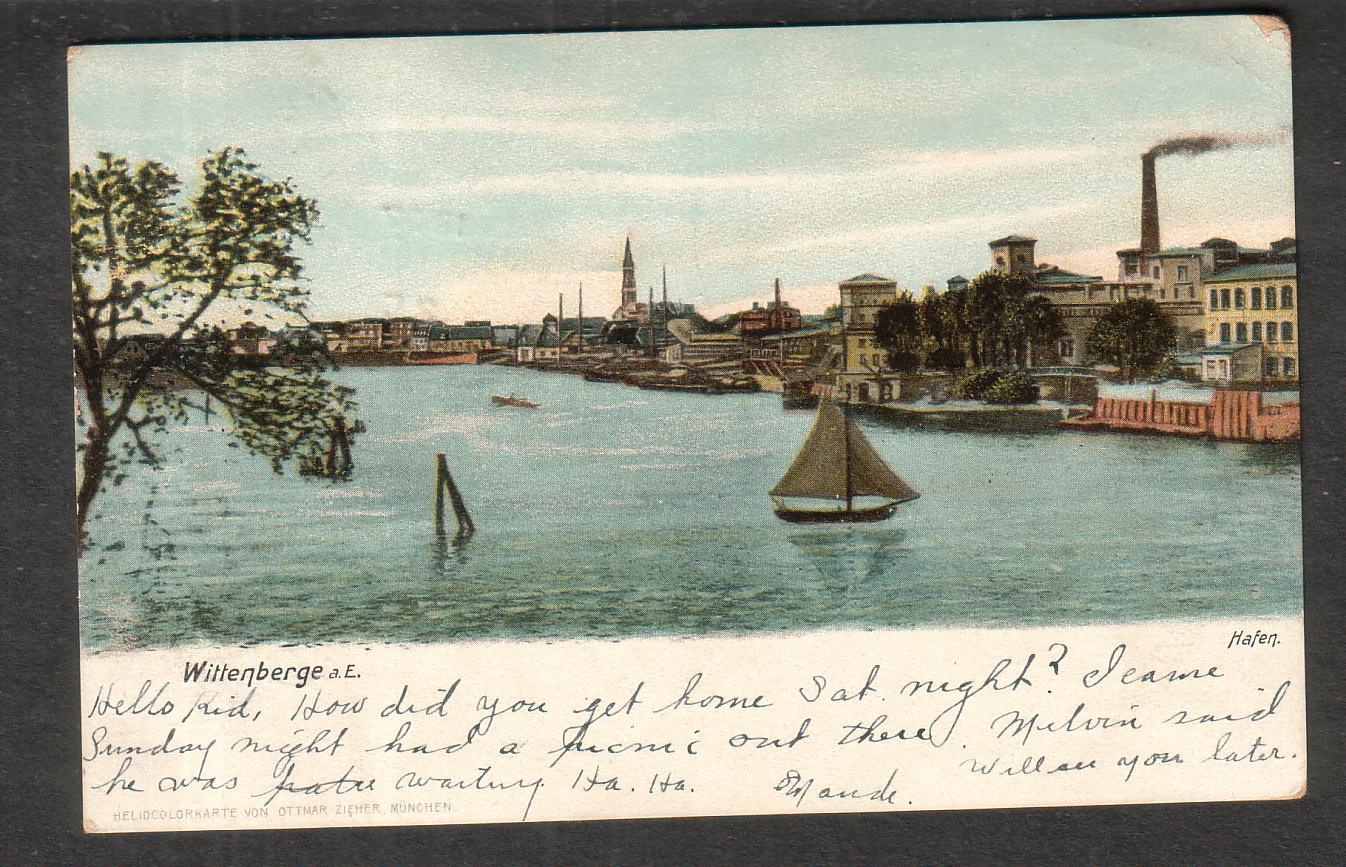 Hafen.
Wittenberge a.E.
Hello Kid, How did you get home Sat. night? I came
Sunday night had a picnic out there. Melvin said
he was waiting. Ha. Ha. Maude. Will see you later.
HELIOCOLORKARTE VON OTTMAR ZIEHER, MÜNCHEN.